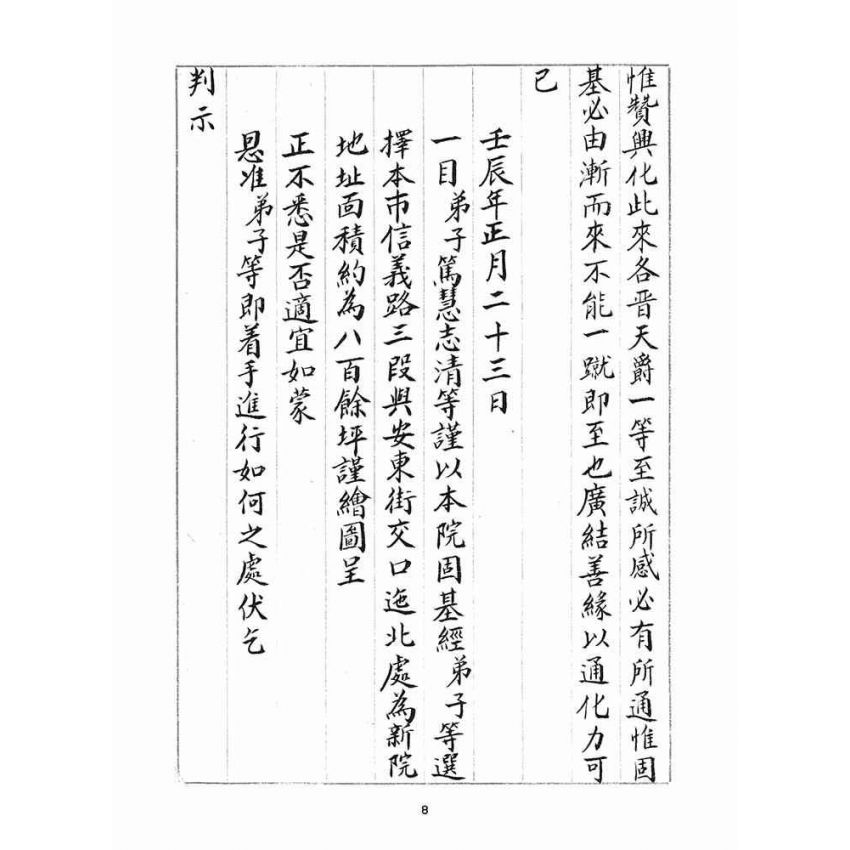 惟贊興化此來各晋天爵一等至誠所感必有所通惟固
基必由漸而來不能一蹴即至也廣結善緣以通化力可
已
壬辰年正月二十三日
一目弟子篤慧志清等謹以本院固基經弟子等選
擇本市信義路三段與安東街交口迤北處為新院
地址面積約為八百餘坪謹繪圖呈
正不悉是否適宜如蒙
恩准弟子等即着手進行如何之處伏乞
判示
8